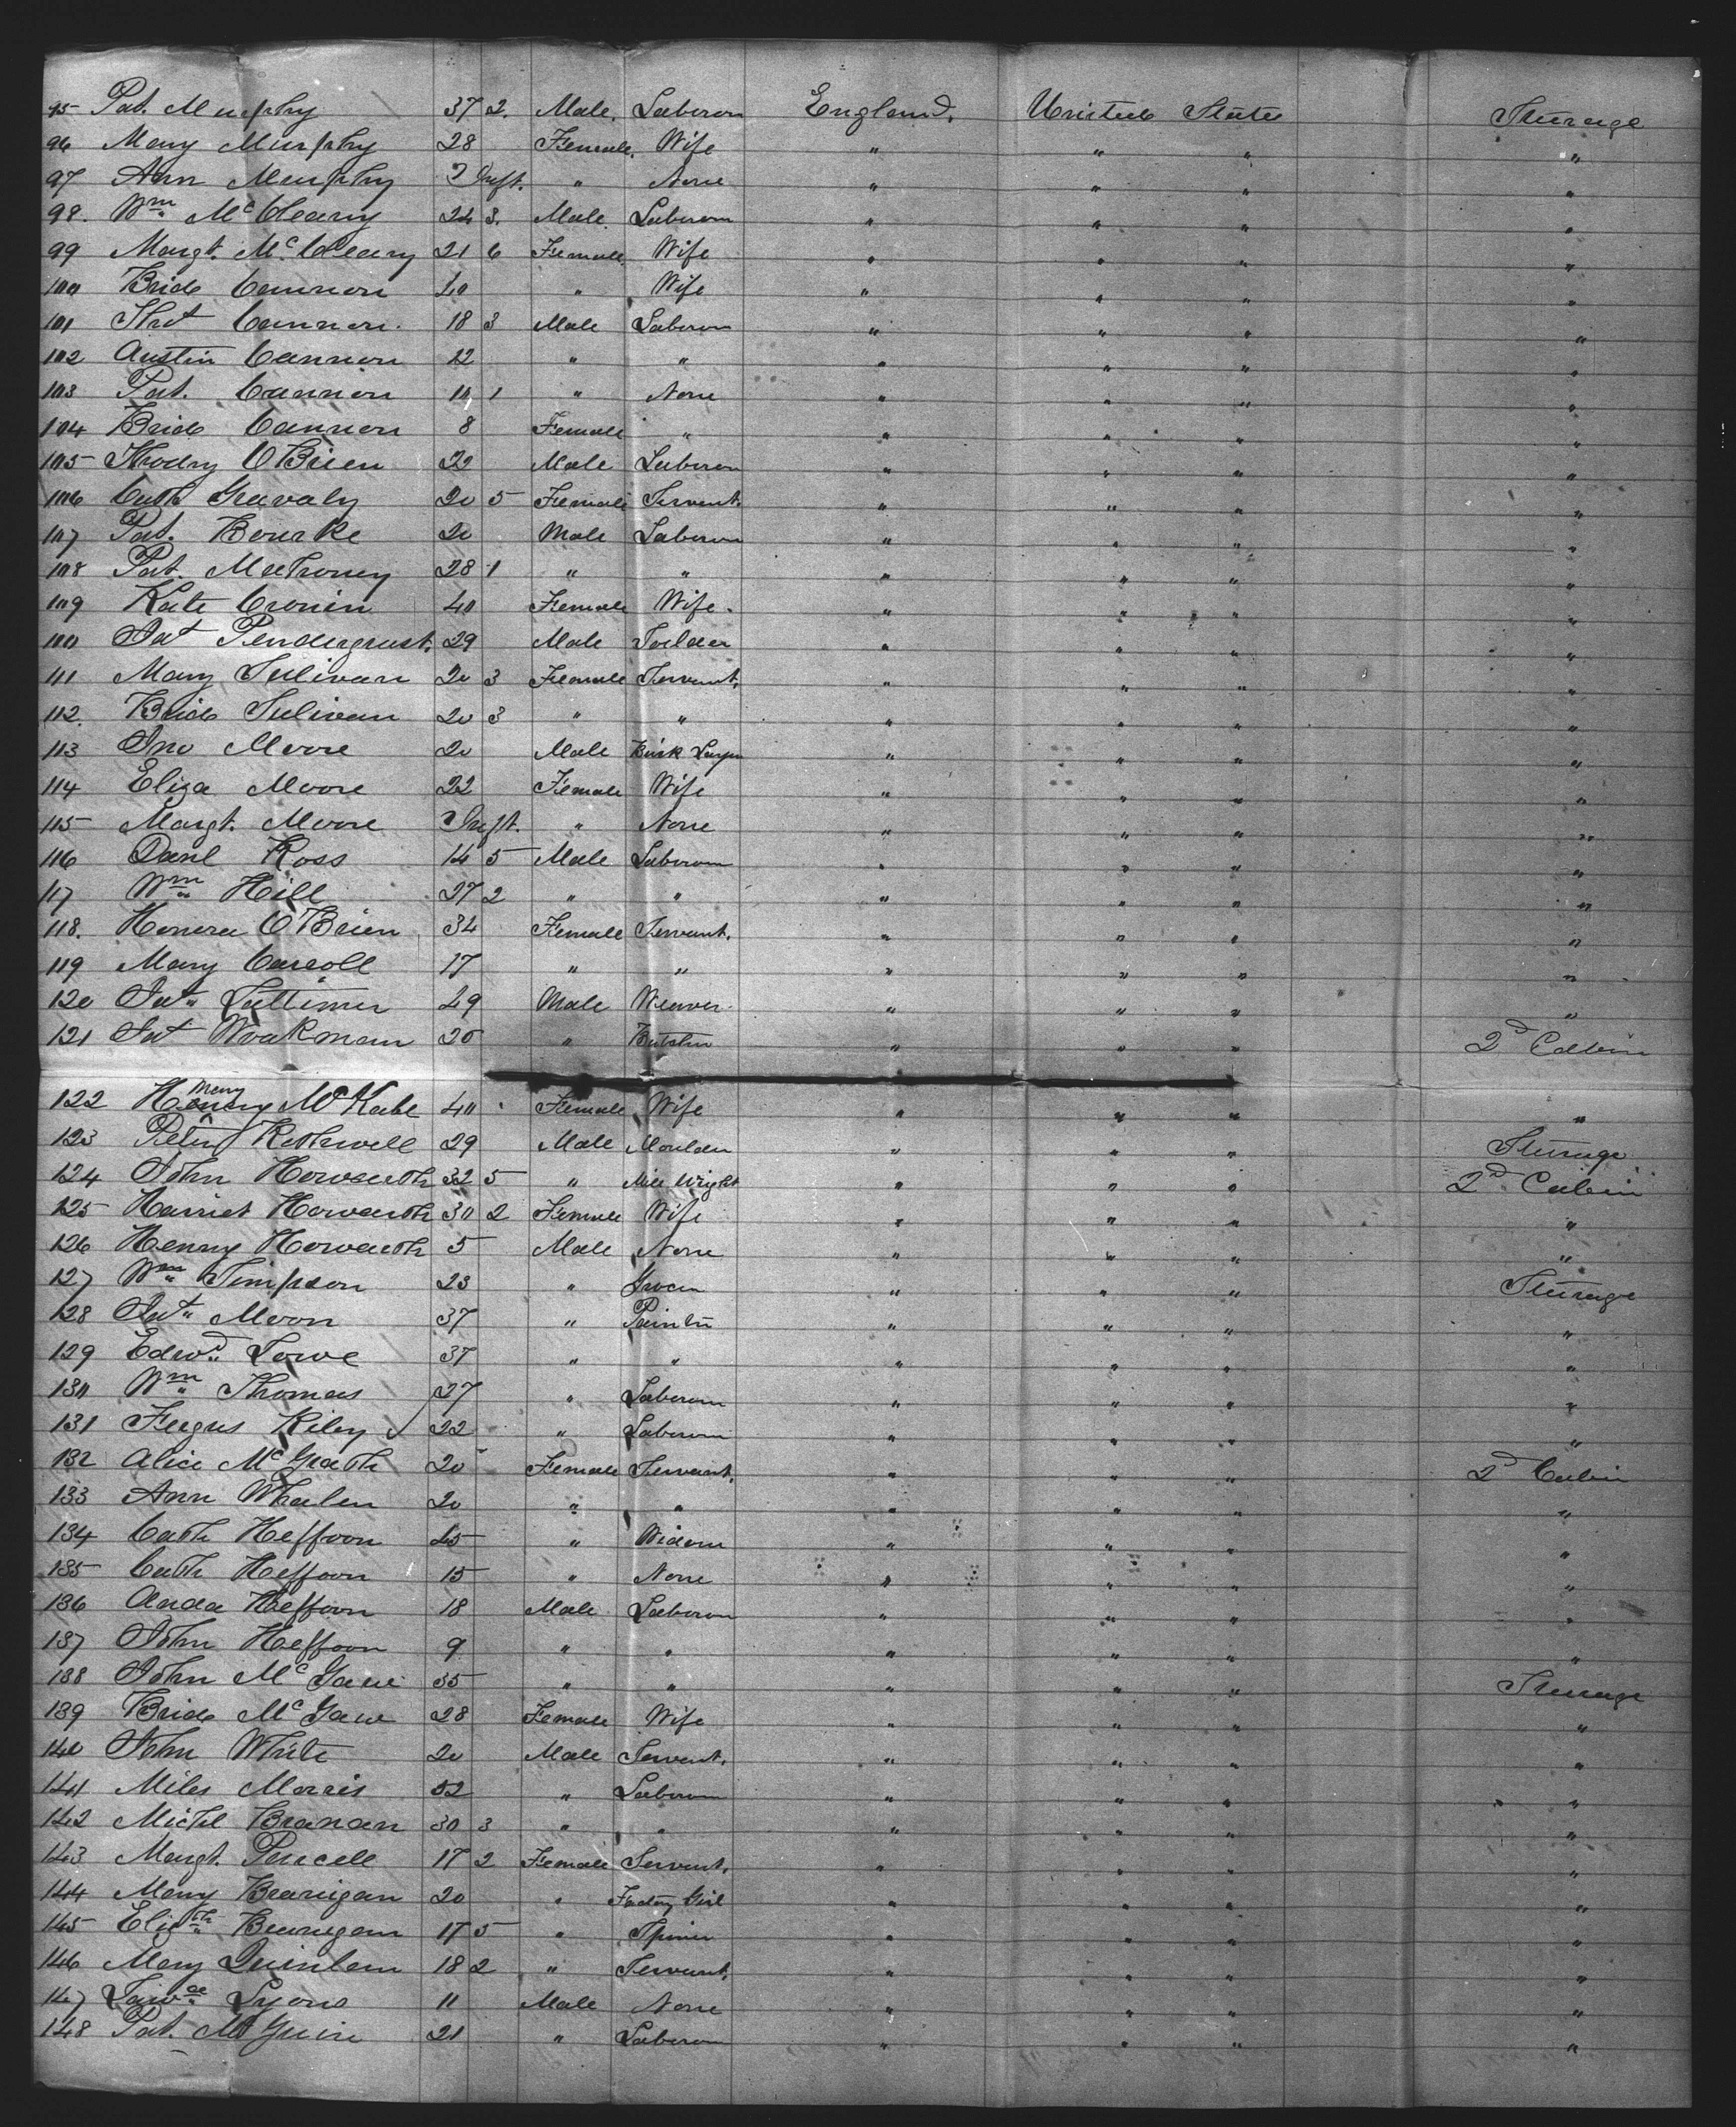 95 Pat. Murphy 37 2. Male. Laborer England. United States Steerage
96 Mary Murphy 28 Female. Wife " " " "
97 Ann Murphy Inft. " None " " " "
98. Wm McCleary 24 3. Male. Laborer " " " "
99 Margt. McCleary 21 6 Female. Wife " " " "
100 Brid Cannon 40 " Wife " " " "
101 Cannon. 18 3 Male Laborer " " " "
102 Austin Cannon 12 " " " " " "
103 Pat. Cannon 10 1 " None " " " "
104 Brid Cannon 8 Female " " " " "
105 Thody O'Brien 22 Male Laborer " " " "
106 Cath 20 5 Female Servant. " " " "
107 Pat. Bourke 20 Male Laborer " " " "
108 Pat. Mahoney 28 1 " " " " " "
109 Kate Cronin 40 Female Wife. " " " "
110 Pendergrast. 29 Male " " " "
111 Mary Sulivan 20 3 Female Servant. " " " "
112. Brid Sulivan 20 3 " " " " " "
113 Jno Moore 20 Male Brick " " " "
114 Eliza Moore 22 Female Wife " " " "
115 Margt. Moore Inft. " None " " " "
116 Danl Ross 14 5 Male Laborer " " " "
117 Wm Hill 27 2 " " " " " "
118. Honora O'Brien 34 Female Servant. " " " "
119 Mary Carroll 17 " " " " " "
120 Lattimer 49 Male Weaver " " " "
121 Workman 20 " Butcher " " " 2d Cabin
122 Mary McKabe 40 Female Wife " " " "
123 Peter Rothwell 29 Male Moulder " " " Steerage
124 John Howarth 32 5 " Mill Wright " " " 2d Cabin
125 Harriet Howarth 30 2 Female Wife " " " "
126 Henry Howarth 5 Male None " " " "
127 Wm Simpson 23 " Grocer " " " Steerage
128 Moon 37 " Painter " " " "
129 Edwd Lowe 37 " " " " " "
130 Wm Thomas 27 " Laborer " " " "
131 Fergus Riley 22 " Laborer " " " "
132 Alice McGrath 20 Female Servant. " " " 2d Cabin
133 Ann Whalen 20 " " " " " "
134 Cath Heffron 45 " Widow " " " "
135 Cath Heffron 15 " None " " " "
136 Heffron 18 Male Laborer " " " "
137 John Heffron 9 " " " " " "
138 John McGaw 35 " " " " " Steerage
139 Brid McGaw 28 Female Wife " " " "
140 John White 20 Male Servant. " " " "
141 Miles Morris 52 " Laborer " " " "
142 Michl Branan 30 3 " " " " " "
143 Margt. Purcell 17 2 Female Servant. " " " "
144 Mary Branigan 20 " Factory Girl " " " "
145 Elizth Branigan 17 5 " Spinner " " " "
146 Mary Quinlan 18 2 " Servant. " " " "
147 Lawce Lyons 11 Male None " " " "
148 Pat. McGuire 21 " Laborer " " " "